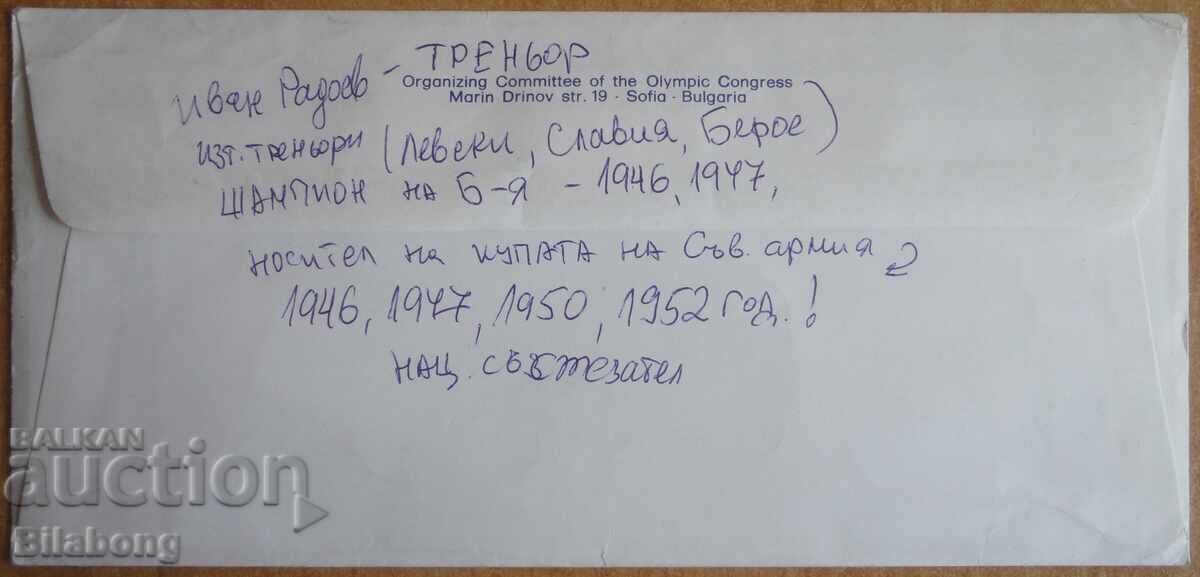 Иван Радоев - ТРЕНЬОР
Organizing Committee of the Olympic Congress
Marin Drinov str. 19 · Sofia · Bulgaria
изт. треньори (Левски, Славия, Берое)
ШАМПИОН на Б-я - 1946, 1947,
носител на купата на Съв. армия
1946, 1947, 1950, 1952 год.!
нац. състезател
BALKAN
auction
Bilabong